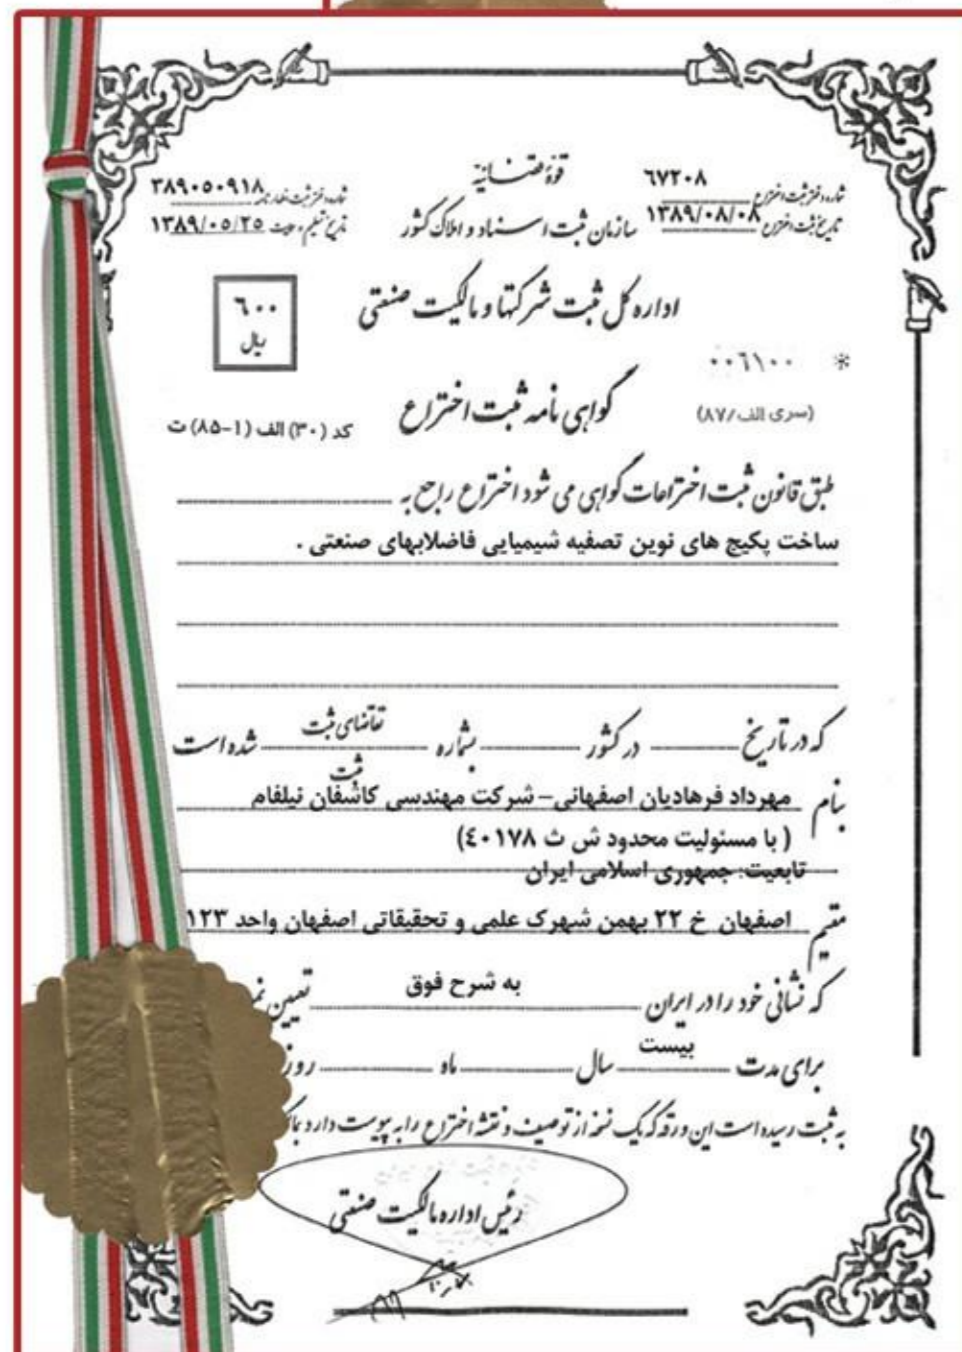 قوهٔ قضائیه
سازمان ثبت اسناد و املاک کشور
شماره دفتر ثبت اختراع ٦٧٢٠٨
تاریخ ثبت اختراع ١٣٨٩/٠٨/٠٨
شماره دفتر ثبت اظهارنامه ٣٨٩٠٥٠٩١٨
تاریخ تسلیم ١٣٨٩/٠٥/٢٥
اداره کل ثبت شرکتها و مالکیت صنعتی
٦٠٠
ریال
* ٠٠٦١٠٠
(سری الف/٨٧)
گواهی نامه ثبت اختراع
کد (٣٠) الف (١-٨٥) ت
طبق قانون ثبت اختراعات گواهی می شود اختراع راجع به
ساخت پکیج های نوین تصفیه شیمیایی فاضلابهای صنعتی .
که در تاریخ در کشور بشماره تقاضای ثبت شده است
ثبت
بنام مهرداد فرهادیان اصفهانی- شرکت مهندسی کاشفان نیلفام
( با مسئولیت محدود ش ث ٤٠١٧٨)
تابعیت: جمهوری اسلامی ایران
مقیم اصفهان خ ٢٢ بهمن شهرک علمی و تحقیقاتی اصفهان واحد ١٢٣
که نشانی خود را در ایران به شرح فوق تعیین
برای مدت بیست سال ماه روز
به ثبت رسیده است این ورقه که یک نسخه از توصیف و نقشه اختراع را به پیوست دارد
رئیس اداره مالکیت صنعتی